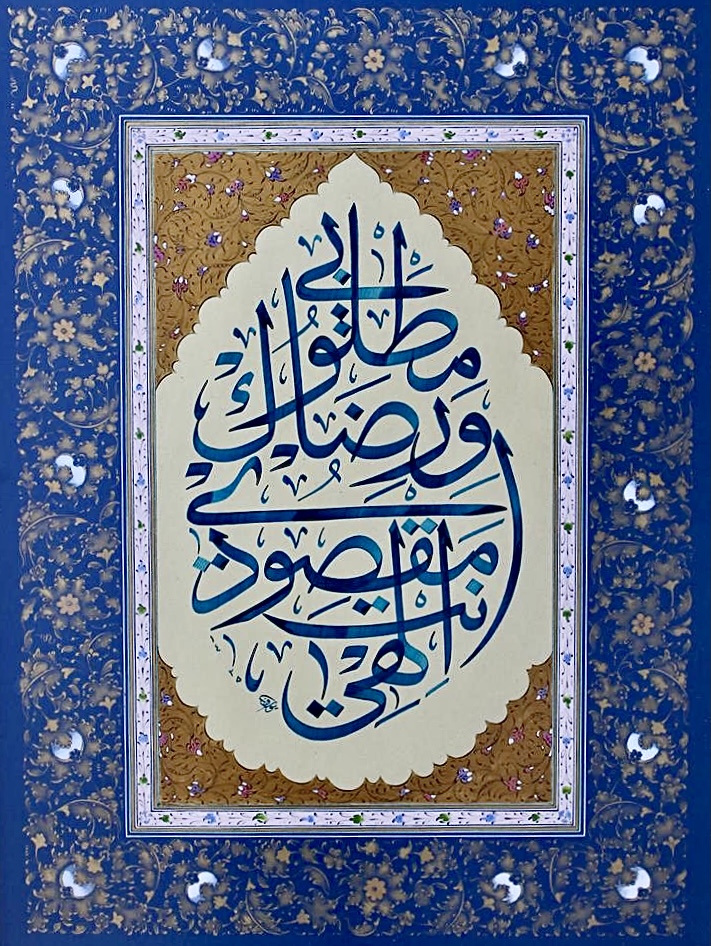 إلهي
أنت مقصودي
ورضاك
مطلوبي